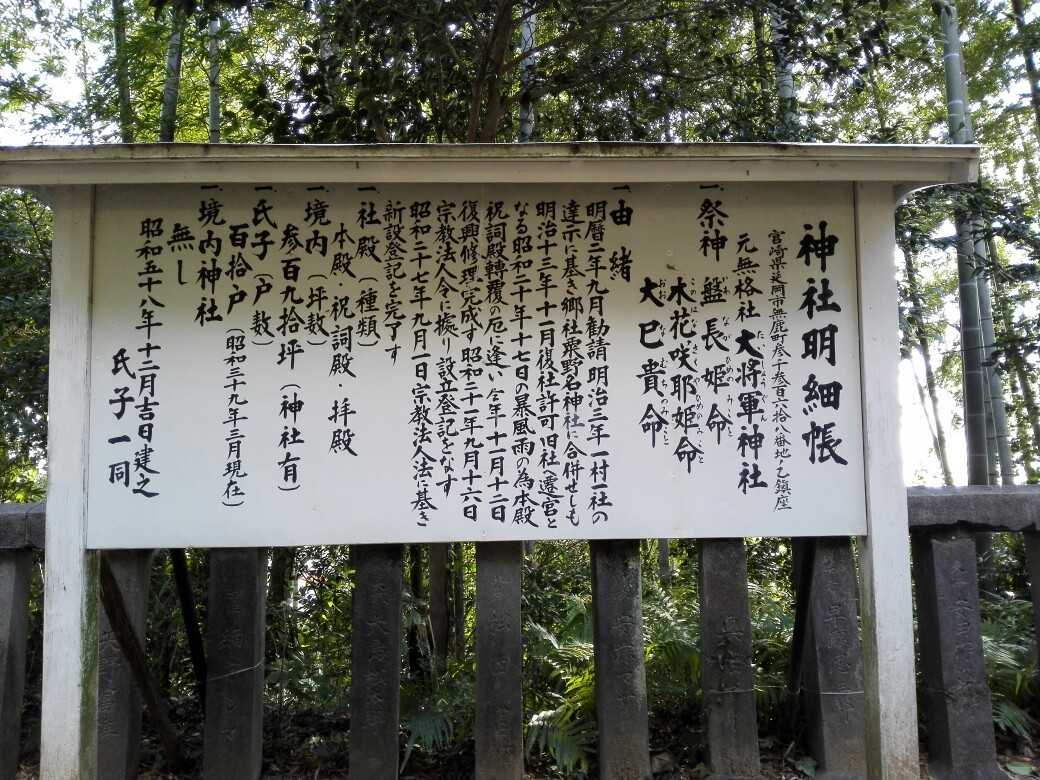 神社明細帳
宮崎県延岡市無鹿町参十参百六拾八番地ノ乙鎮座
元無格社 大将軍神社
一、祭神 盤長姫命
木花咲耶姫命
大巳貴命
一、由緒
明暦二年九月勧請明治三年一村一社の
達示に基き郷社粟野名神社に合併せしも
明治十三年十一月復社許可旧社へ遷宮と
なる昭和二十年十七日の暴風雨の為本殿
祝詞殿轉覆の厄に逢い今年十一月十二日
復興修理を完成す昭和二十一年九月十六日
宗教法人令に據り設立登記をなす
昭和二十七年九月一日宗教法人法に基き
新設登記を完了す
一、社殿（種類）
本殿・祝詞殿・拝殿
一、境内（坪数）
参百九拾坪（神社有）
一、氏子（戸数）
百拾戸（昭和三十九年三月現在）
一、境内神社
無し
昭和五十八年十二月吉日建之
氏子一同